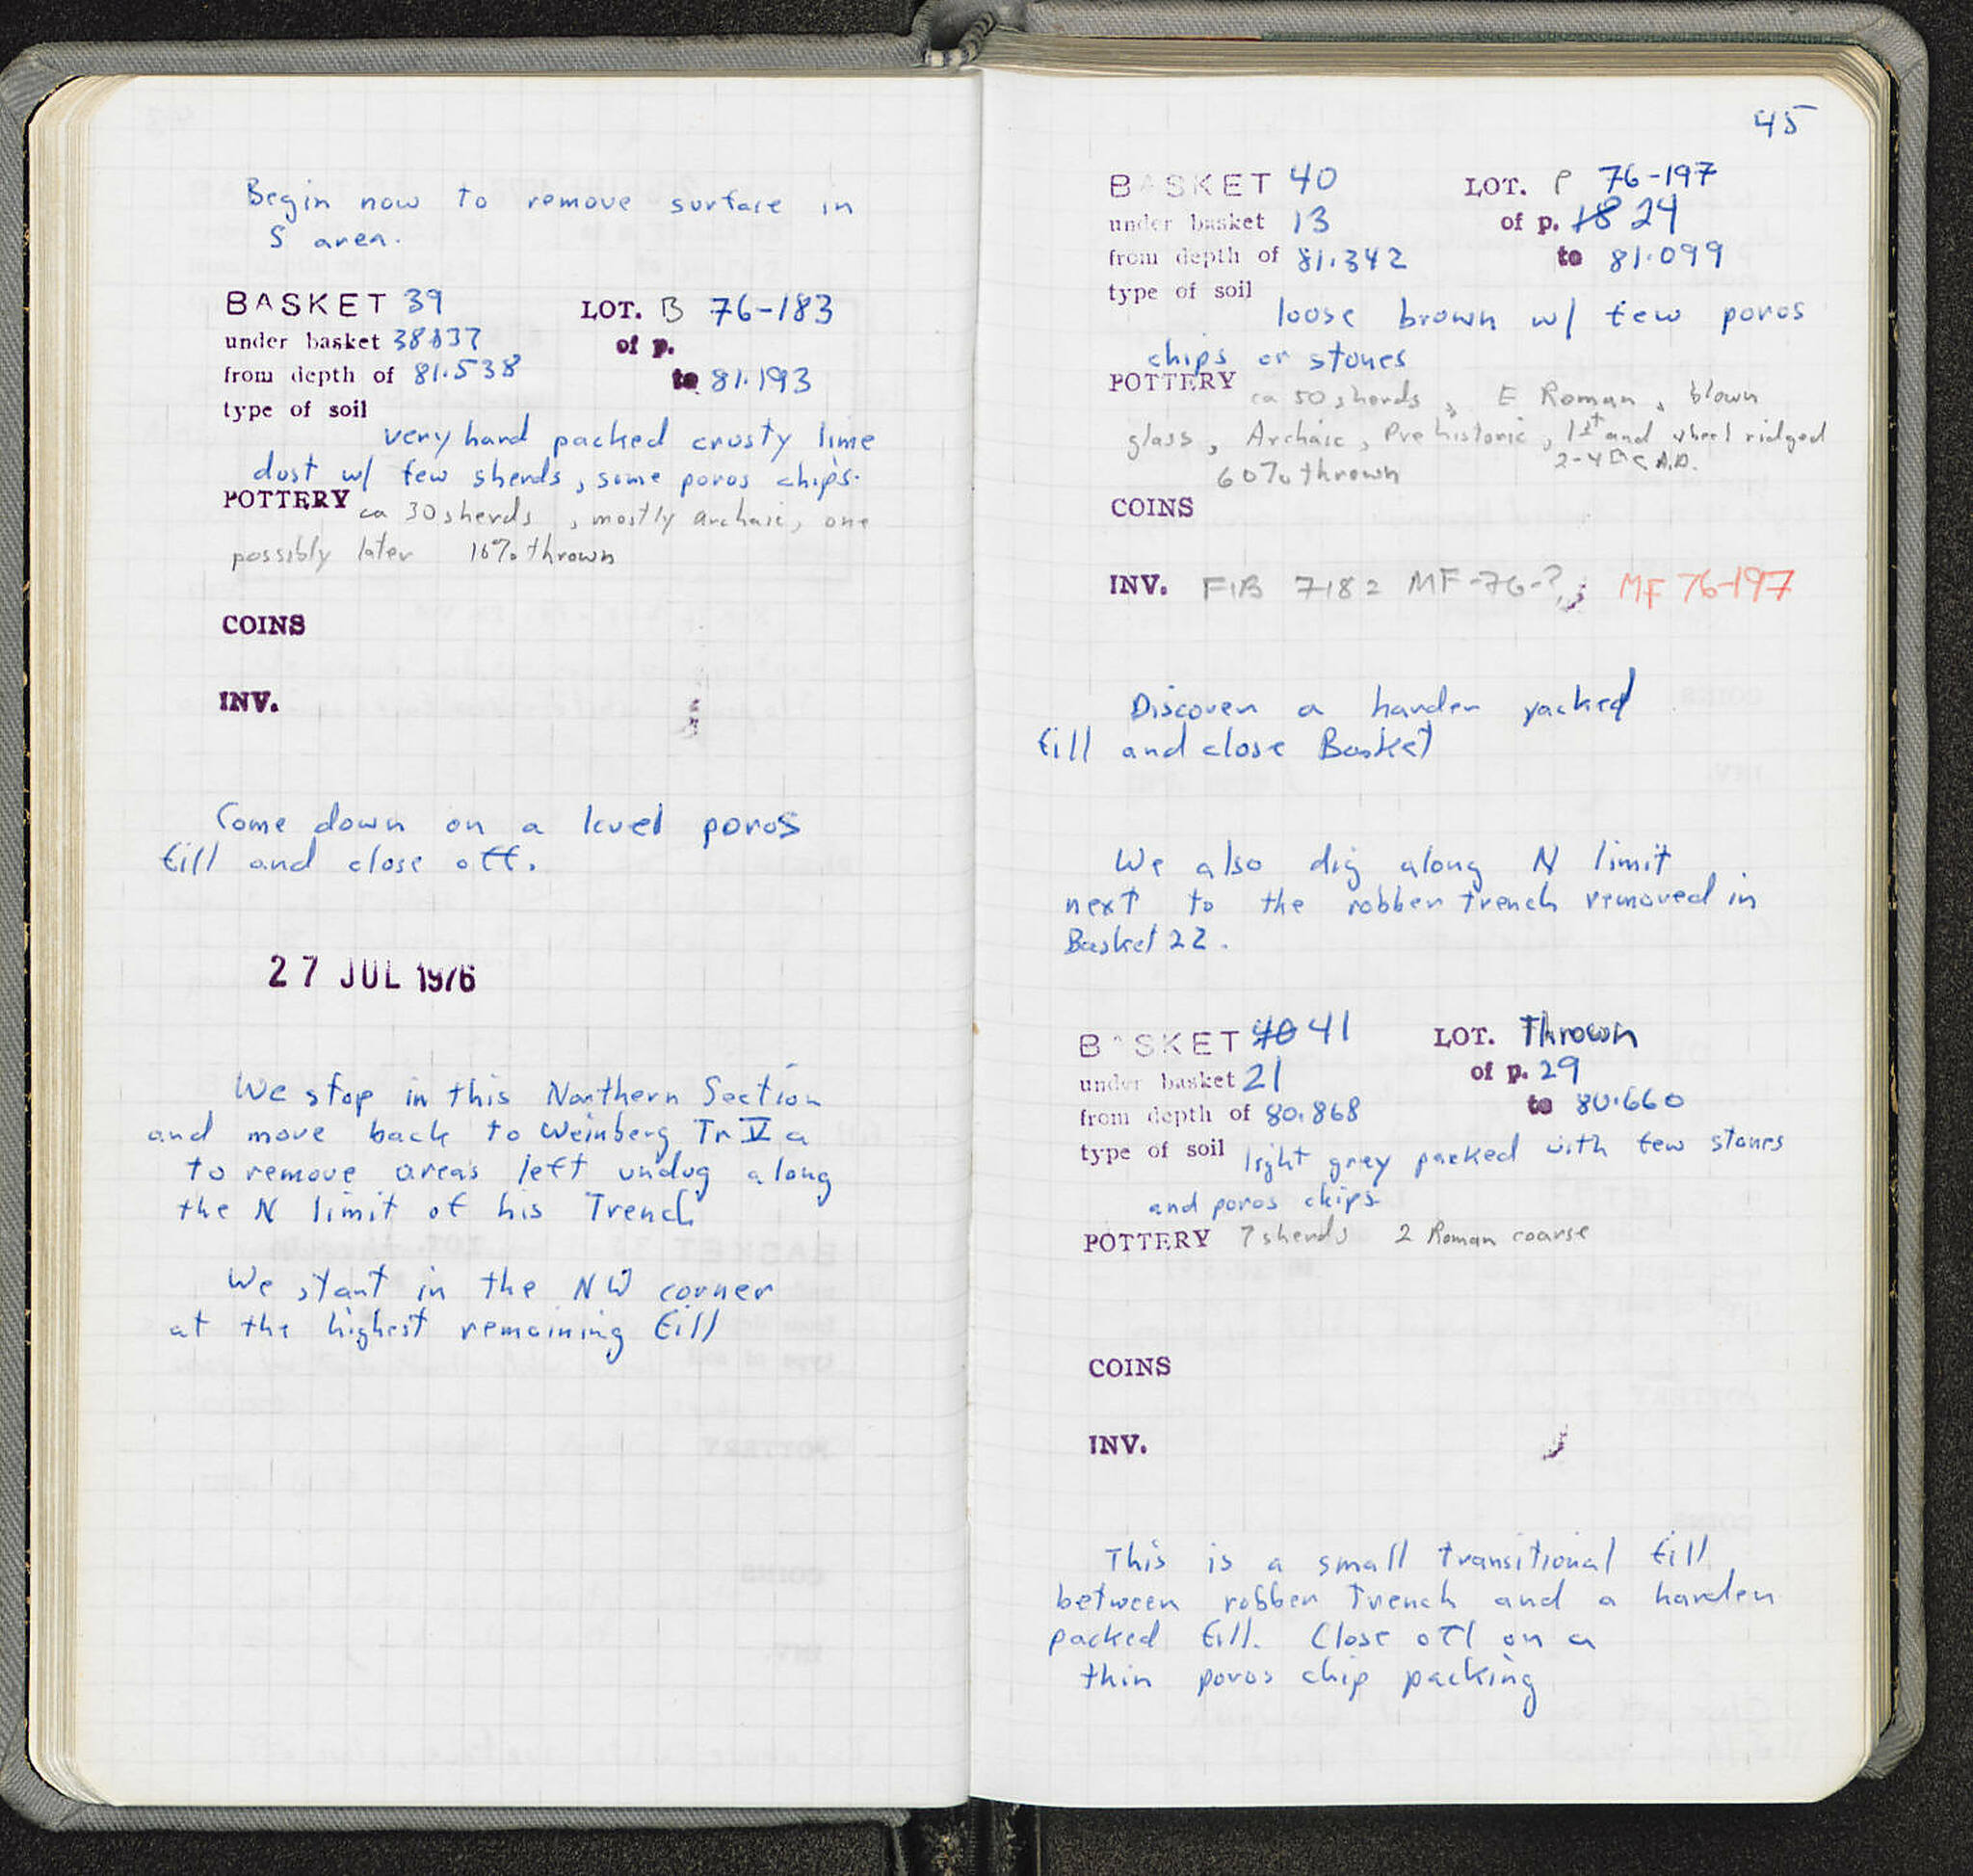 Begin now to remove surface in
S area.
BASKET 39 LOT. B 76-183
under basket 38+37 of p.
from depth of 81.538 to 81.193
type of soil
very hard packed crusty lime
dust w/ few sherds, some poros chips.
POTTERY ca 30 sherds, mostly archaic, one
possibly later 16% thrown
COINS
INV.
Come down on a level poros
fill and close off.
27 JUL 1976
We stop in this Northern Section
and move back to Weinberg Tr V a
to remove areas left undug along
the N limit of his Trench
We start in the NW corner
at the highest remaining fill
45
BASKET 40 LOT. P 76-197
under basket 13 of p. 18 24
from depth of 81.342 to 81.099
type of soil
loose brown w/ few poros
chips or stones
POTTERY
ca 50 sherds, E Roman, blown
glass, Archaic, Prehistoric, 1st and wheel ridged
2-4 A.D.
60% thrown
COINS
INV. FIB 7182 MF-76-?; MF 76-197
Discover a harder packed
fill and close Basket
We also dig along N limit
next to the robber trench removed in
Basket 22.
BASKET 40 41 LOT. Thrown
under basket 21 of p. 29
from depth of 80.868 to 80.660
type of soil light grey packed with few stones
and poros chips
POTTERY 7 sherds 2 Roman coarse
COINS
INV.
This is a small transitional fill
between robber trench and a harder
packed fill. Close off on a
thin poros chip packing